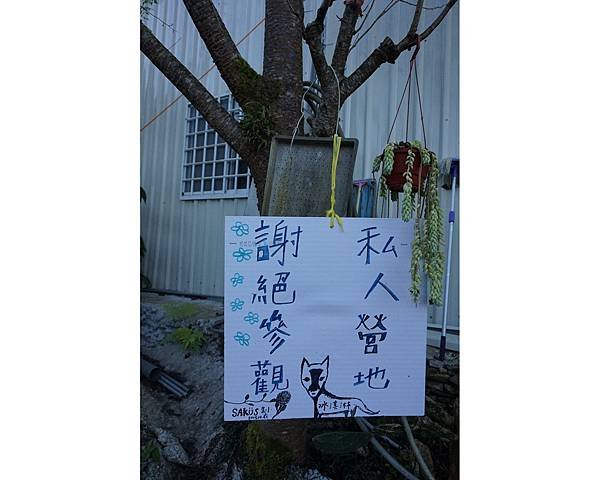 私人營地
謝絕參觀
SAKÜS